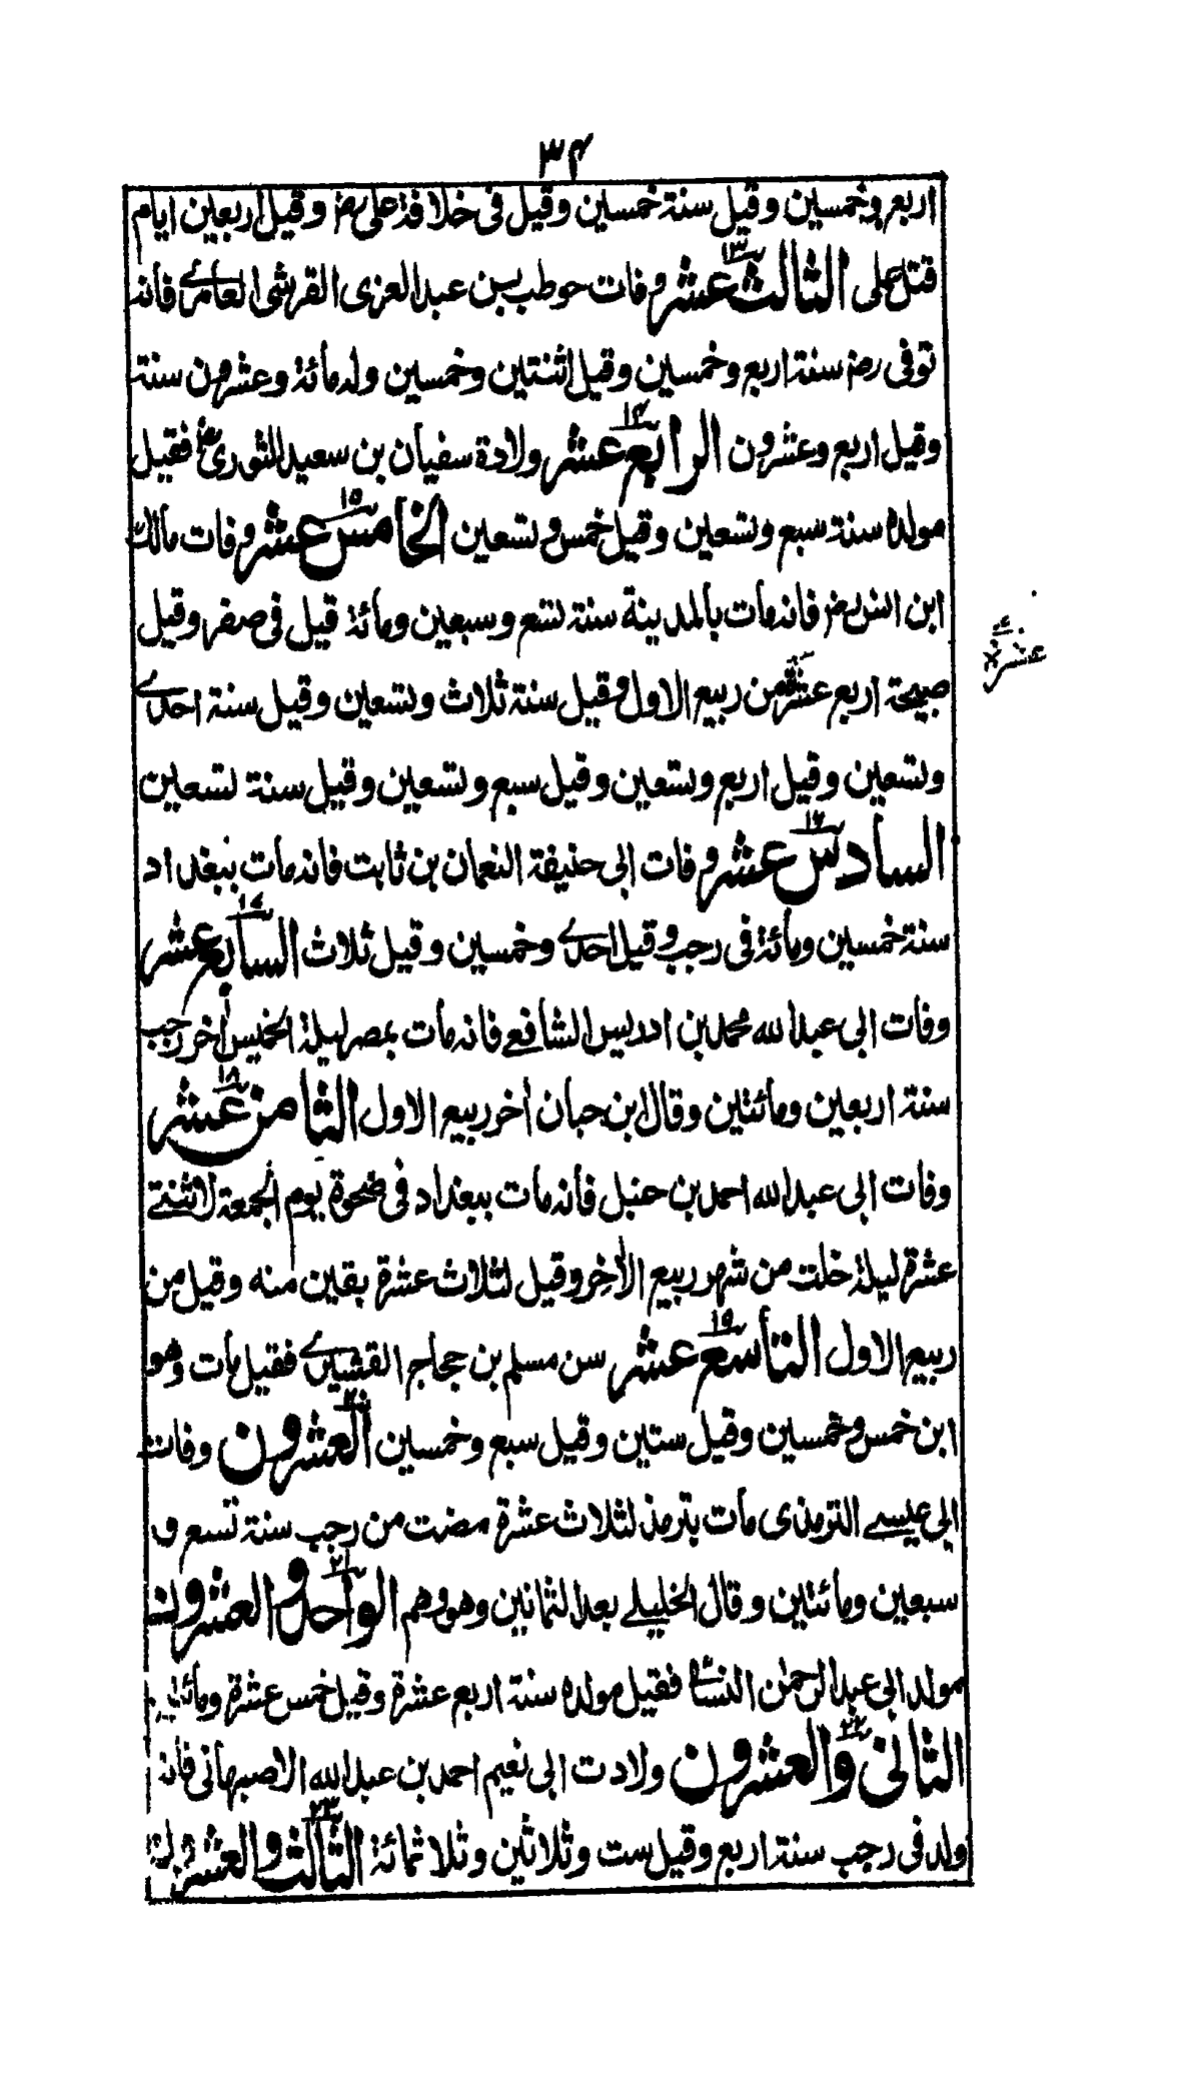 ۳۴
اربع وخمسين وقيل سنة خمسين وقيل فى خلافة على رض وقيل اربعين ايام
قتل على الثالث عشر ۱۳ وفات حوطب بن عبد العزى القرشى العامرے فانه
توفى رض سنة اربع وخمسين وقيل اثنتين وخمسين وله مائة وعشرون سنة
وقيل اربع وعشرون الرابع عشر ۱۴ ولادة سفيان بن سعيد الثورى فقيل
مولده سنة سبع وتسعين وقيل خمس وتسعين الخامس عشر ۱۵ وفات مالك
ابن انس رض فانه مات بالمدينة سنة تسع وسبعين ومائة قيل فى صفر وقيل
صبيحة اربع عشرة من ربيع الاول وقيل سنة ثلاث وتسعين وقيل سنة احدے
عشرة
وتسعين وقيل اربع وتسعين وقيل سبع وتسعين وقيل سنة تسعين
السادس عشر ۱۶ وفات ابى حنيفة النعمان بن ثابت فانه مات ببغداد
سنة خمسين ومائة فى رجب وقيل احدے وخمسين وقيل ثلاث السابع عشر ۱۷
وفات ابى عبد الله محمد بن ادريس الشافعے فانه مات بمصر ليلة الخميس آخر رجب
سنة اربعين ومائتين وقال ابن حبان آخر ربيع الاول الثامن عشر ۱۸
وفات ابى عبد الله احمد بن حنبل فانه مات ببغداد فى ضحوة يوم الجمعة لاثنتے
عشرة ليلة خلت من شهر ربيع الآخر وقيل لثلاث عشرة بقين منه وقيل من
ربيع الاول التاسع عشر ۱۹ سن مسلم بن حجاج القشيرے فقيل مات وهو
ابن خمس وخمسين وقيل ستين وقيل سبع وخمسين العشرون ۲۰ وفات
ابى عيسے الترمذى مات بترمذ لثلاث عشرة مضت من رجب سنة تسع و
سبعين ومائتين وقال الخليلے بعد الثمانين وهو وهم الواحد والعشرون ۲۱
مولد ابى عبد الرحمن النسائے فقيل مولده سنة اربع عشرة وقيل خمس عشرة ومائتين
الثانى والعشرون ۲۲ ولادت ابى نعيم احمد بن عبد الله الاصبهانى فانه
ولد فى رجب سنة اربع وقيل ست وثلاثين وثلاثمائة الثالث والعشرون ۲۳